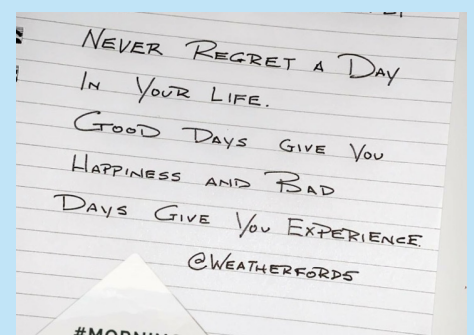 NEVER REGRET A DAY
IN YOUR LIFE.
GOOD DAYS GIVE YOU
HAPPINESS AND BAD
DAYS GIVE YOU EXPERIENCE
@WEATHERFORD5